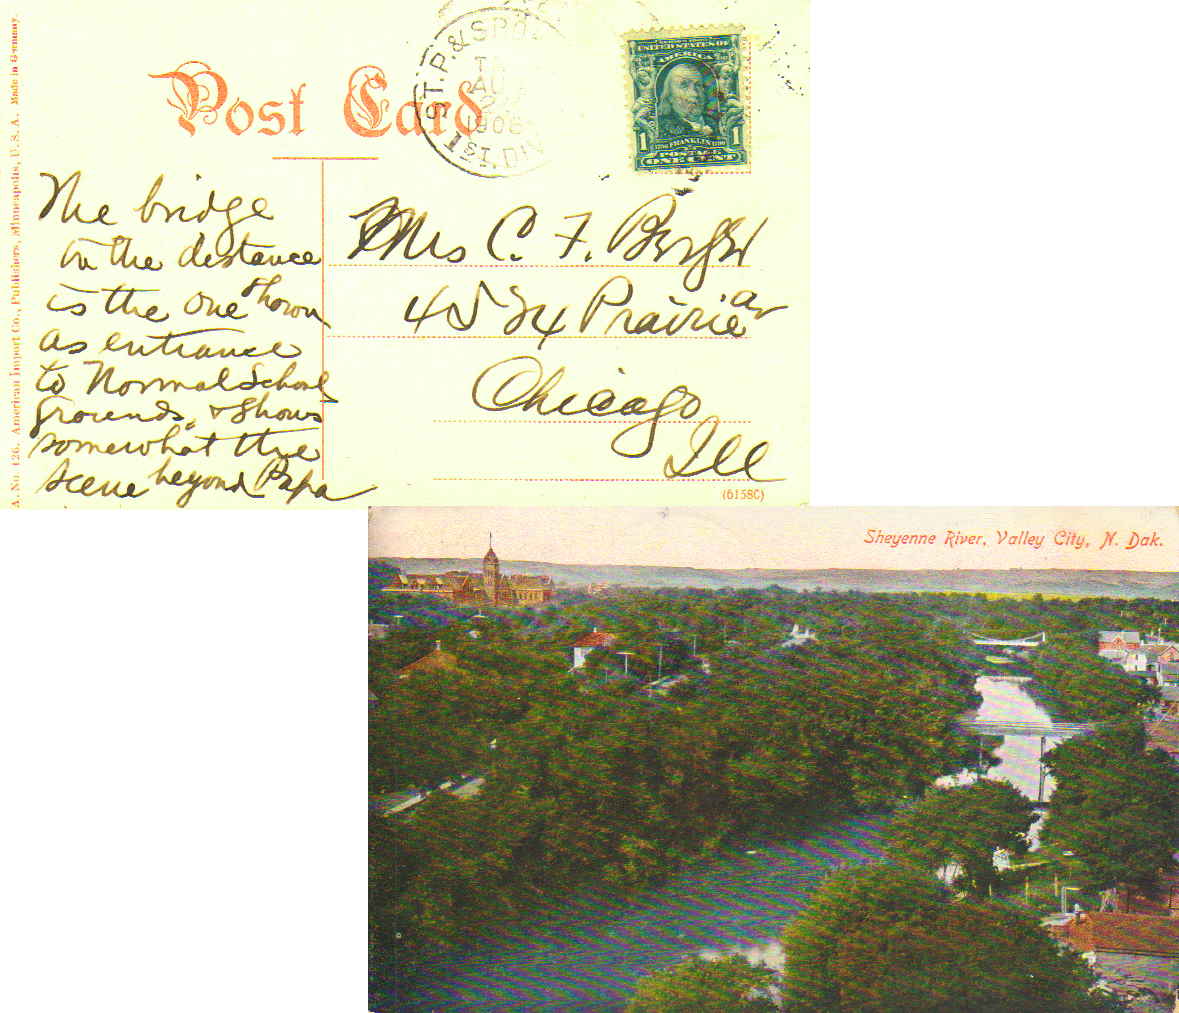 A. No. 126. American Import Co., Publishers, Minneapolis, U. S. A. Made in Germany.
Post Card
ST. P. & SPO
AU
1908
1ST. DIV
UNITED STATES OF
AMERICA
1 FRANKLIN 1
POSTAGE
ONE CENT
The bridge
in the distance
is the one shown
as entrance
to Normal School
grounds, & shows
somewhat the
scene beyond Papa
Mrs C. F. Berger
4524 Prairie av
Chicago
Ill
(6158C)
Sheyenne River, Valley City, N. Dak.